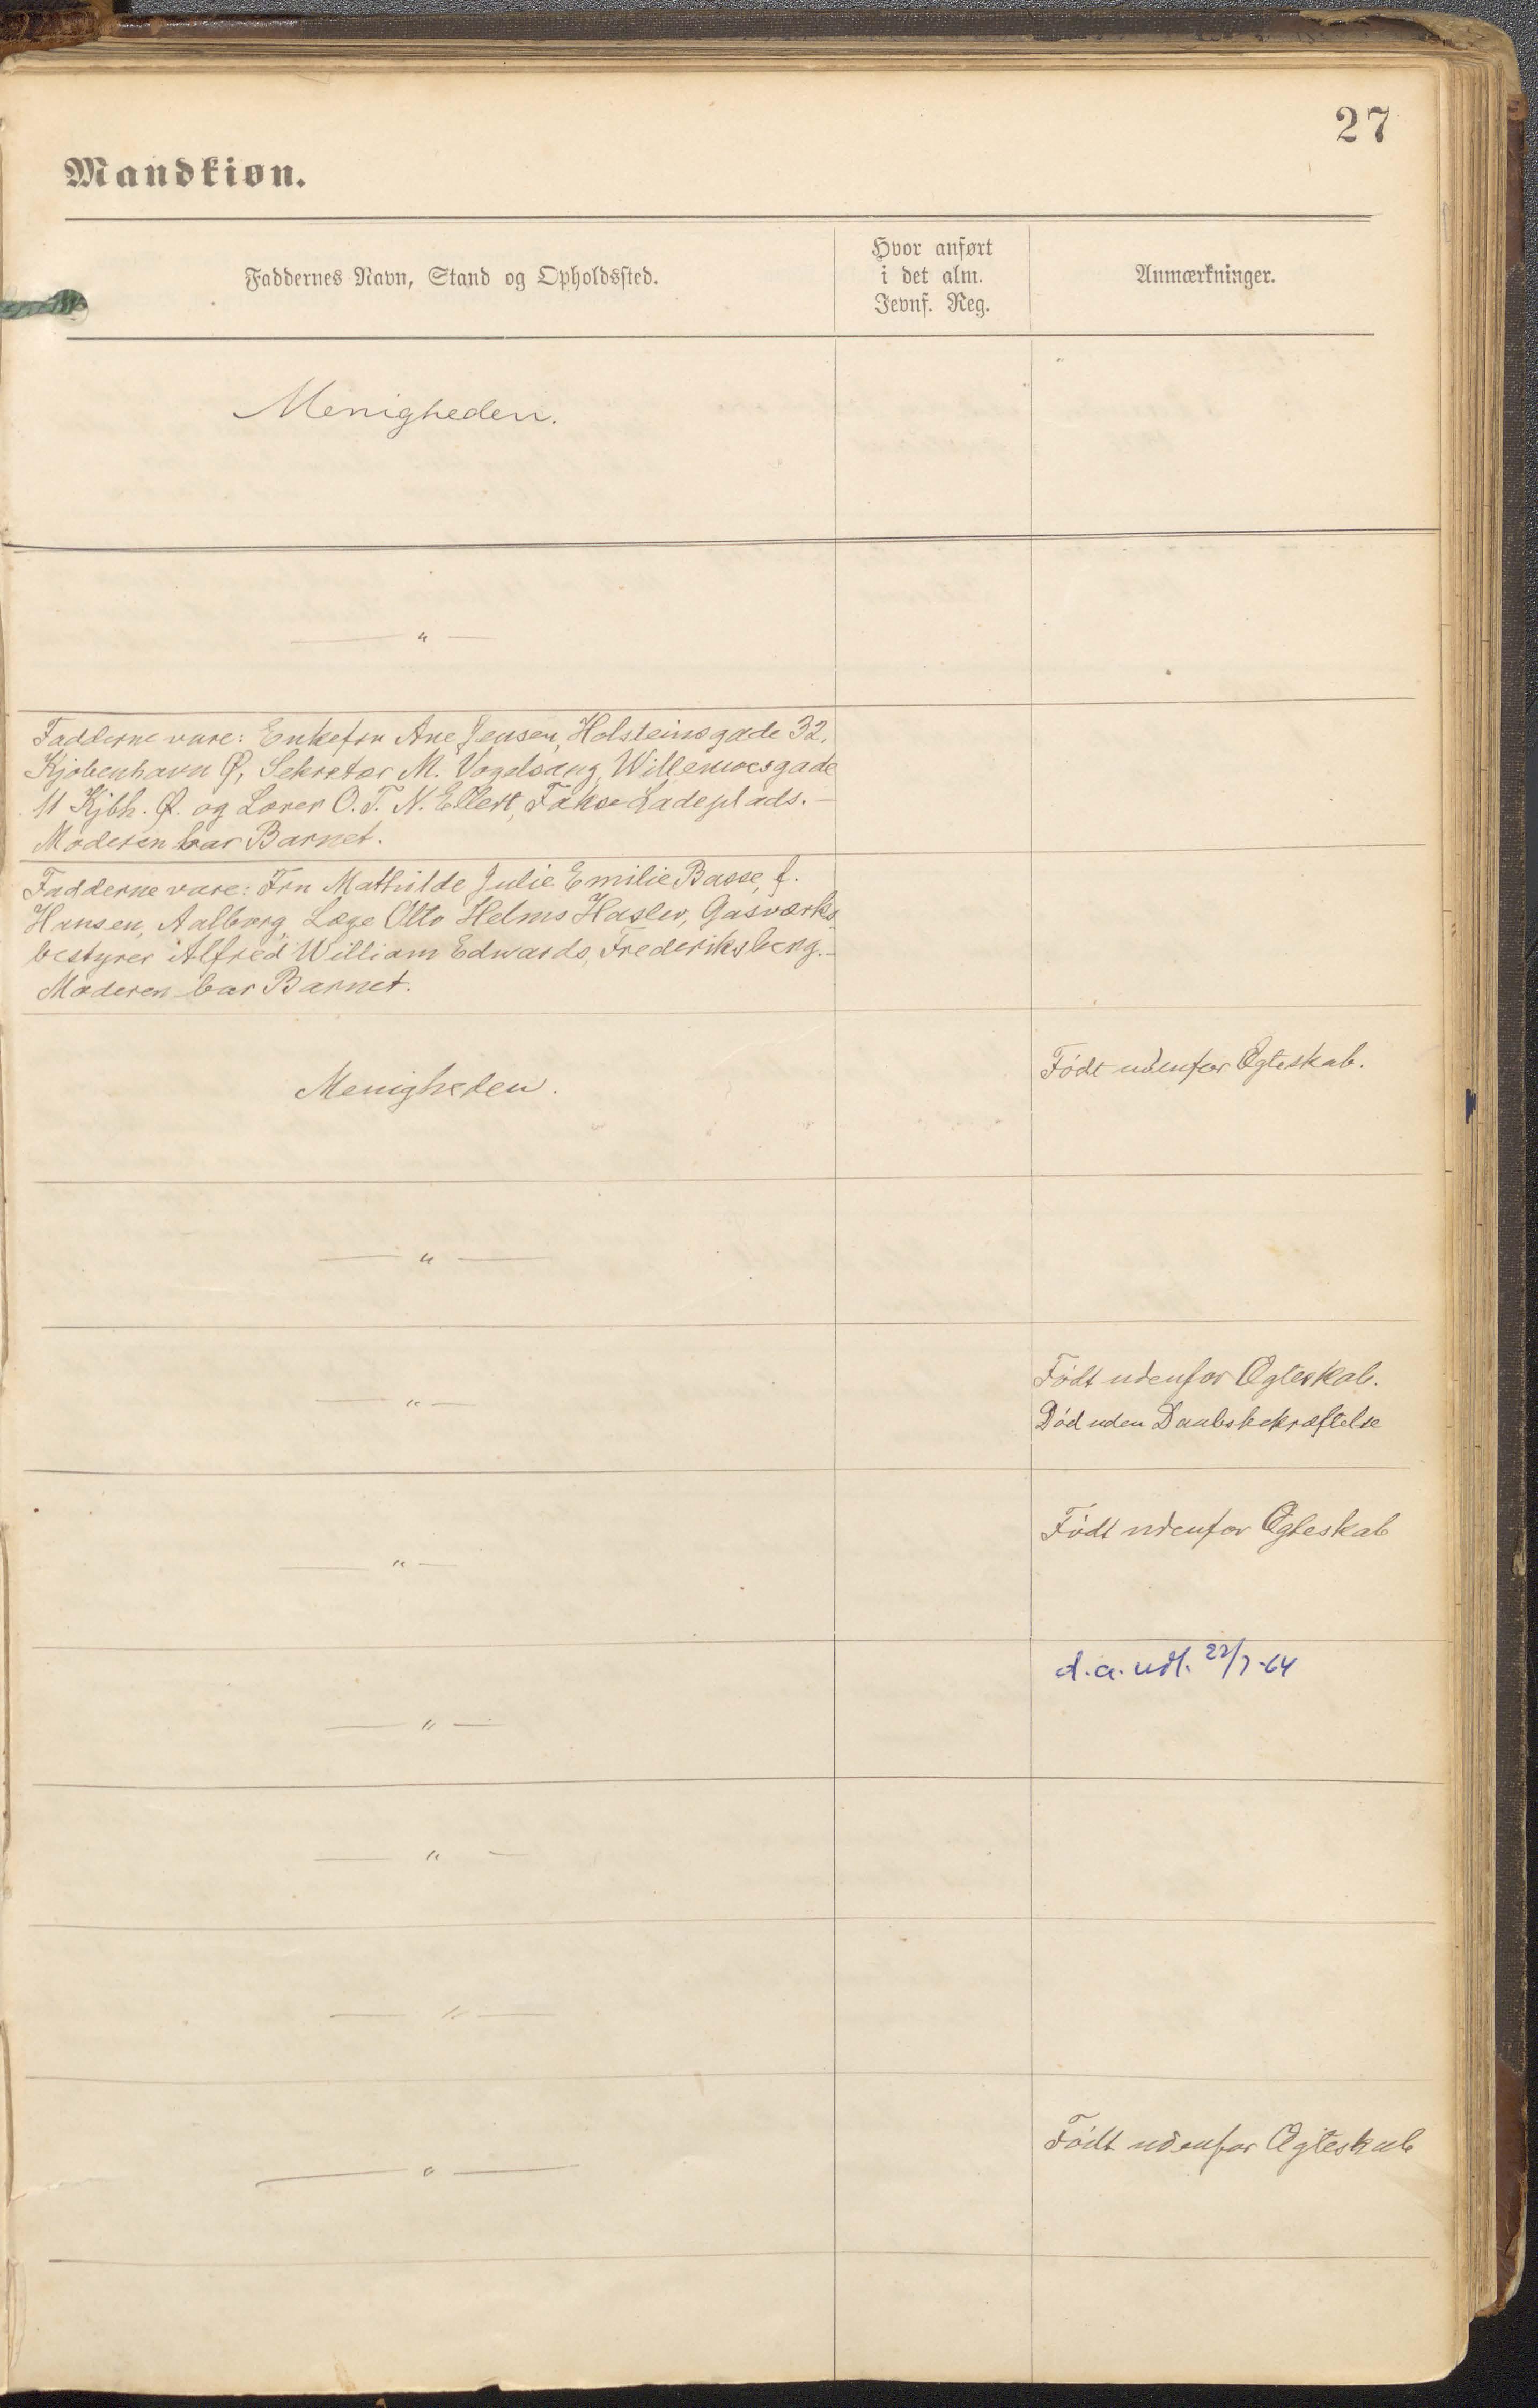 27
Mandkiøn.
Faddernes Navn, Stand og Opholdssted.
Hvor anført
i det alm.
Jevnf. Reg.
Anmærkninger.
Menigheden.
— " —
Fadderne vare: Enkefru Ane Jensen, Holsteinsgade 32,
Kjøbenhavn Ø, Sekretær M. Vogelsang, Willemoesgade
11 Kjbh. Ø. og Lærer O. T. N. Ellert, Fakse Ladeplads. —
Moderen bar Barnet.
Fadderne vare: Fru Mathilde Julie Emilie Basse, f.
Hansen, Aalborg, Læge Otto Helms Haslev, Gasværks
bestyrer Alfred William Edwards, Frederiksberg. —
Moderen bar Barnet.
Menigheden.
Født udenfor Ægteskab.
— " —
— " —
Født udenfor Ægteskab.
Død uden Daabsbekræftelse
— " —
Født udenfor Ægteskab
— " —
d.a. udl. 22/7-64
— " —
— " —
— " —
Født udenfor Ægteskab